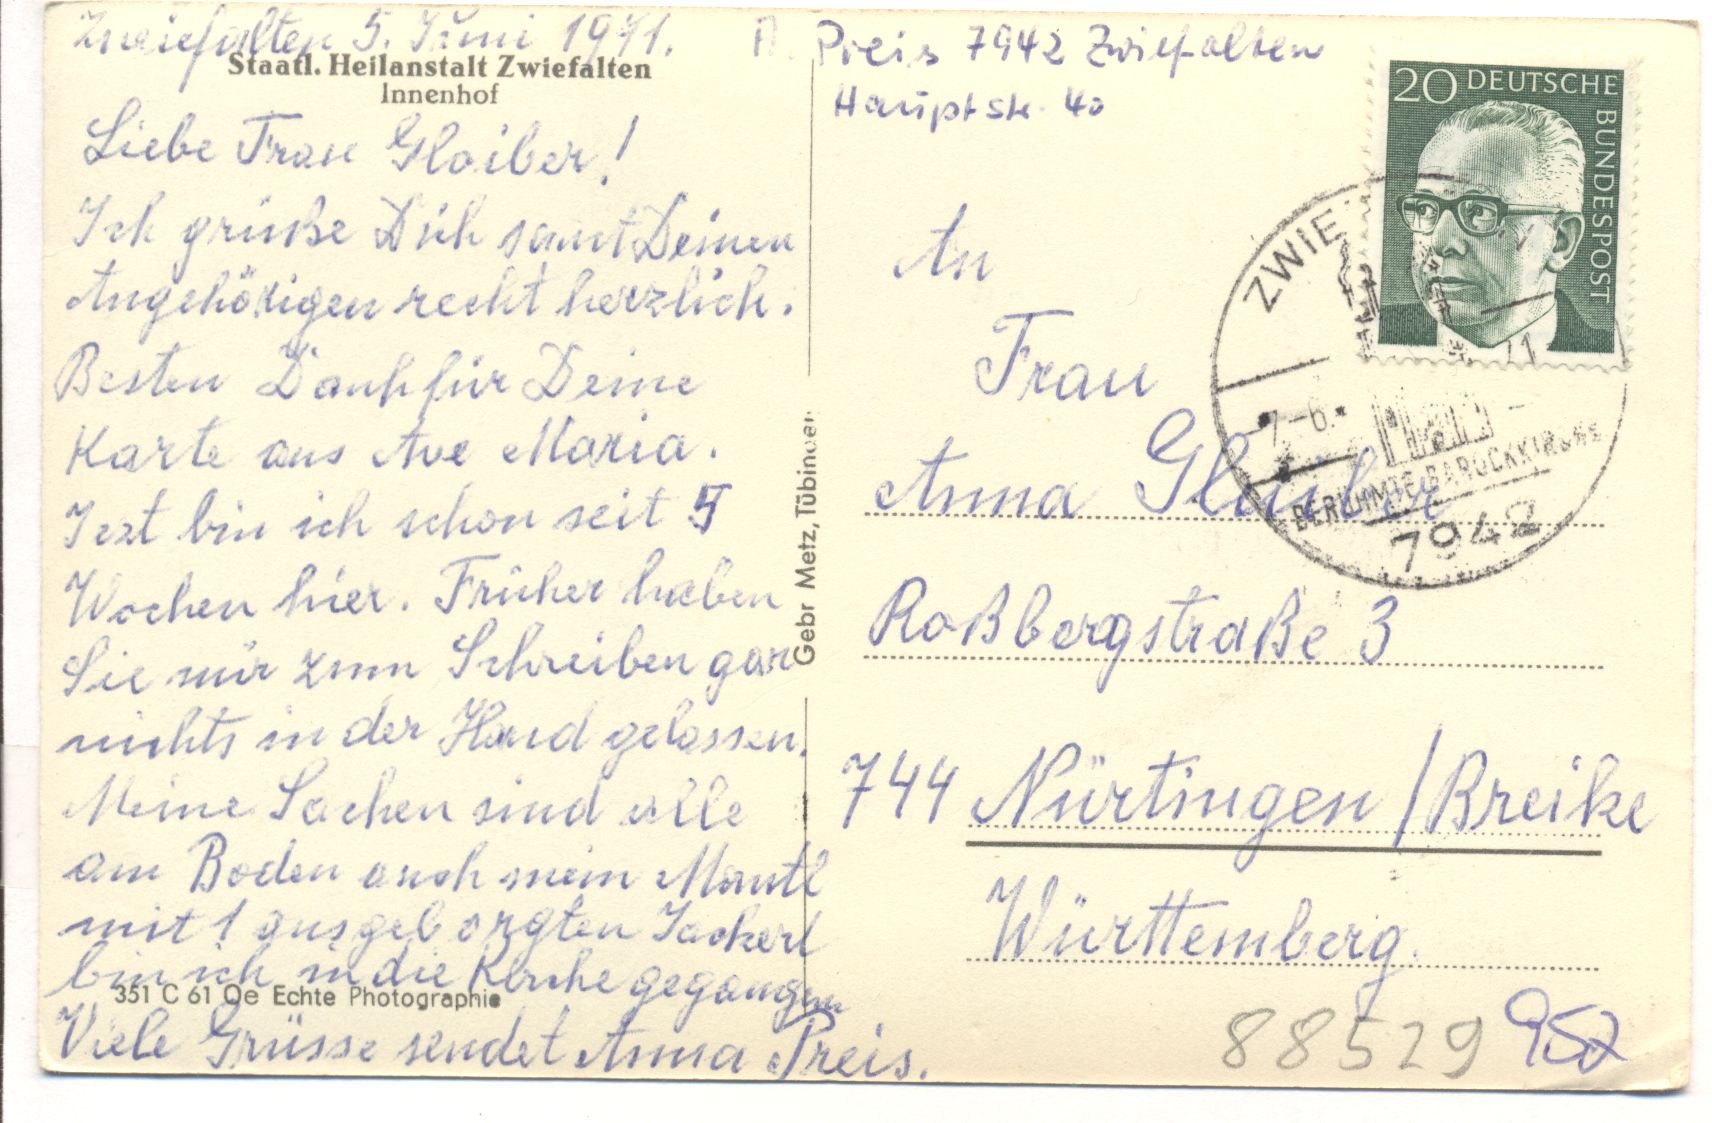 Zwiefalten 5. Juni 1971.
Staatl. Heilanstalt Zwiefalten
Innenhof
Liebe Frau Gloiber!
Ich grüße Dich samt Deinen
Angehörigen recht herzlich.
Besten Dank für Deine
Karte aus Ave Maria.
Jezt bin ich schon seit 5
Wochen hier. Früher haben
Sie mir zum Schreiben gar
nichts in der Hand gelassen.
Meine Sachen sind alle
am Boden auch mein Mantl
mit 1 ausgeborgten Jackerl
bin ich in die Kirche gegangen
351 C 61 Oe Echte Photographie
Viele Grüsse sendet Anna Preis.
Gebr Metz, Tübingen
A. Preis 7942 Zwiefalten
Hauptstr. 40
20 DEUTSCHE BUNDESPOST
ZWIE
-7-6. 71
BERÜHMTE BAROCKKIRCHE
7942
An
Frau
Anna Glauber
Roßbergstraße 3
744 Nürtingen / Breike
Württemberg.
88529 950